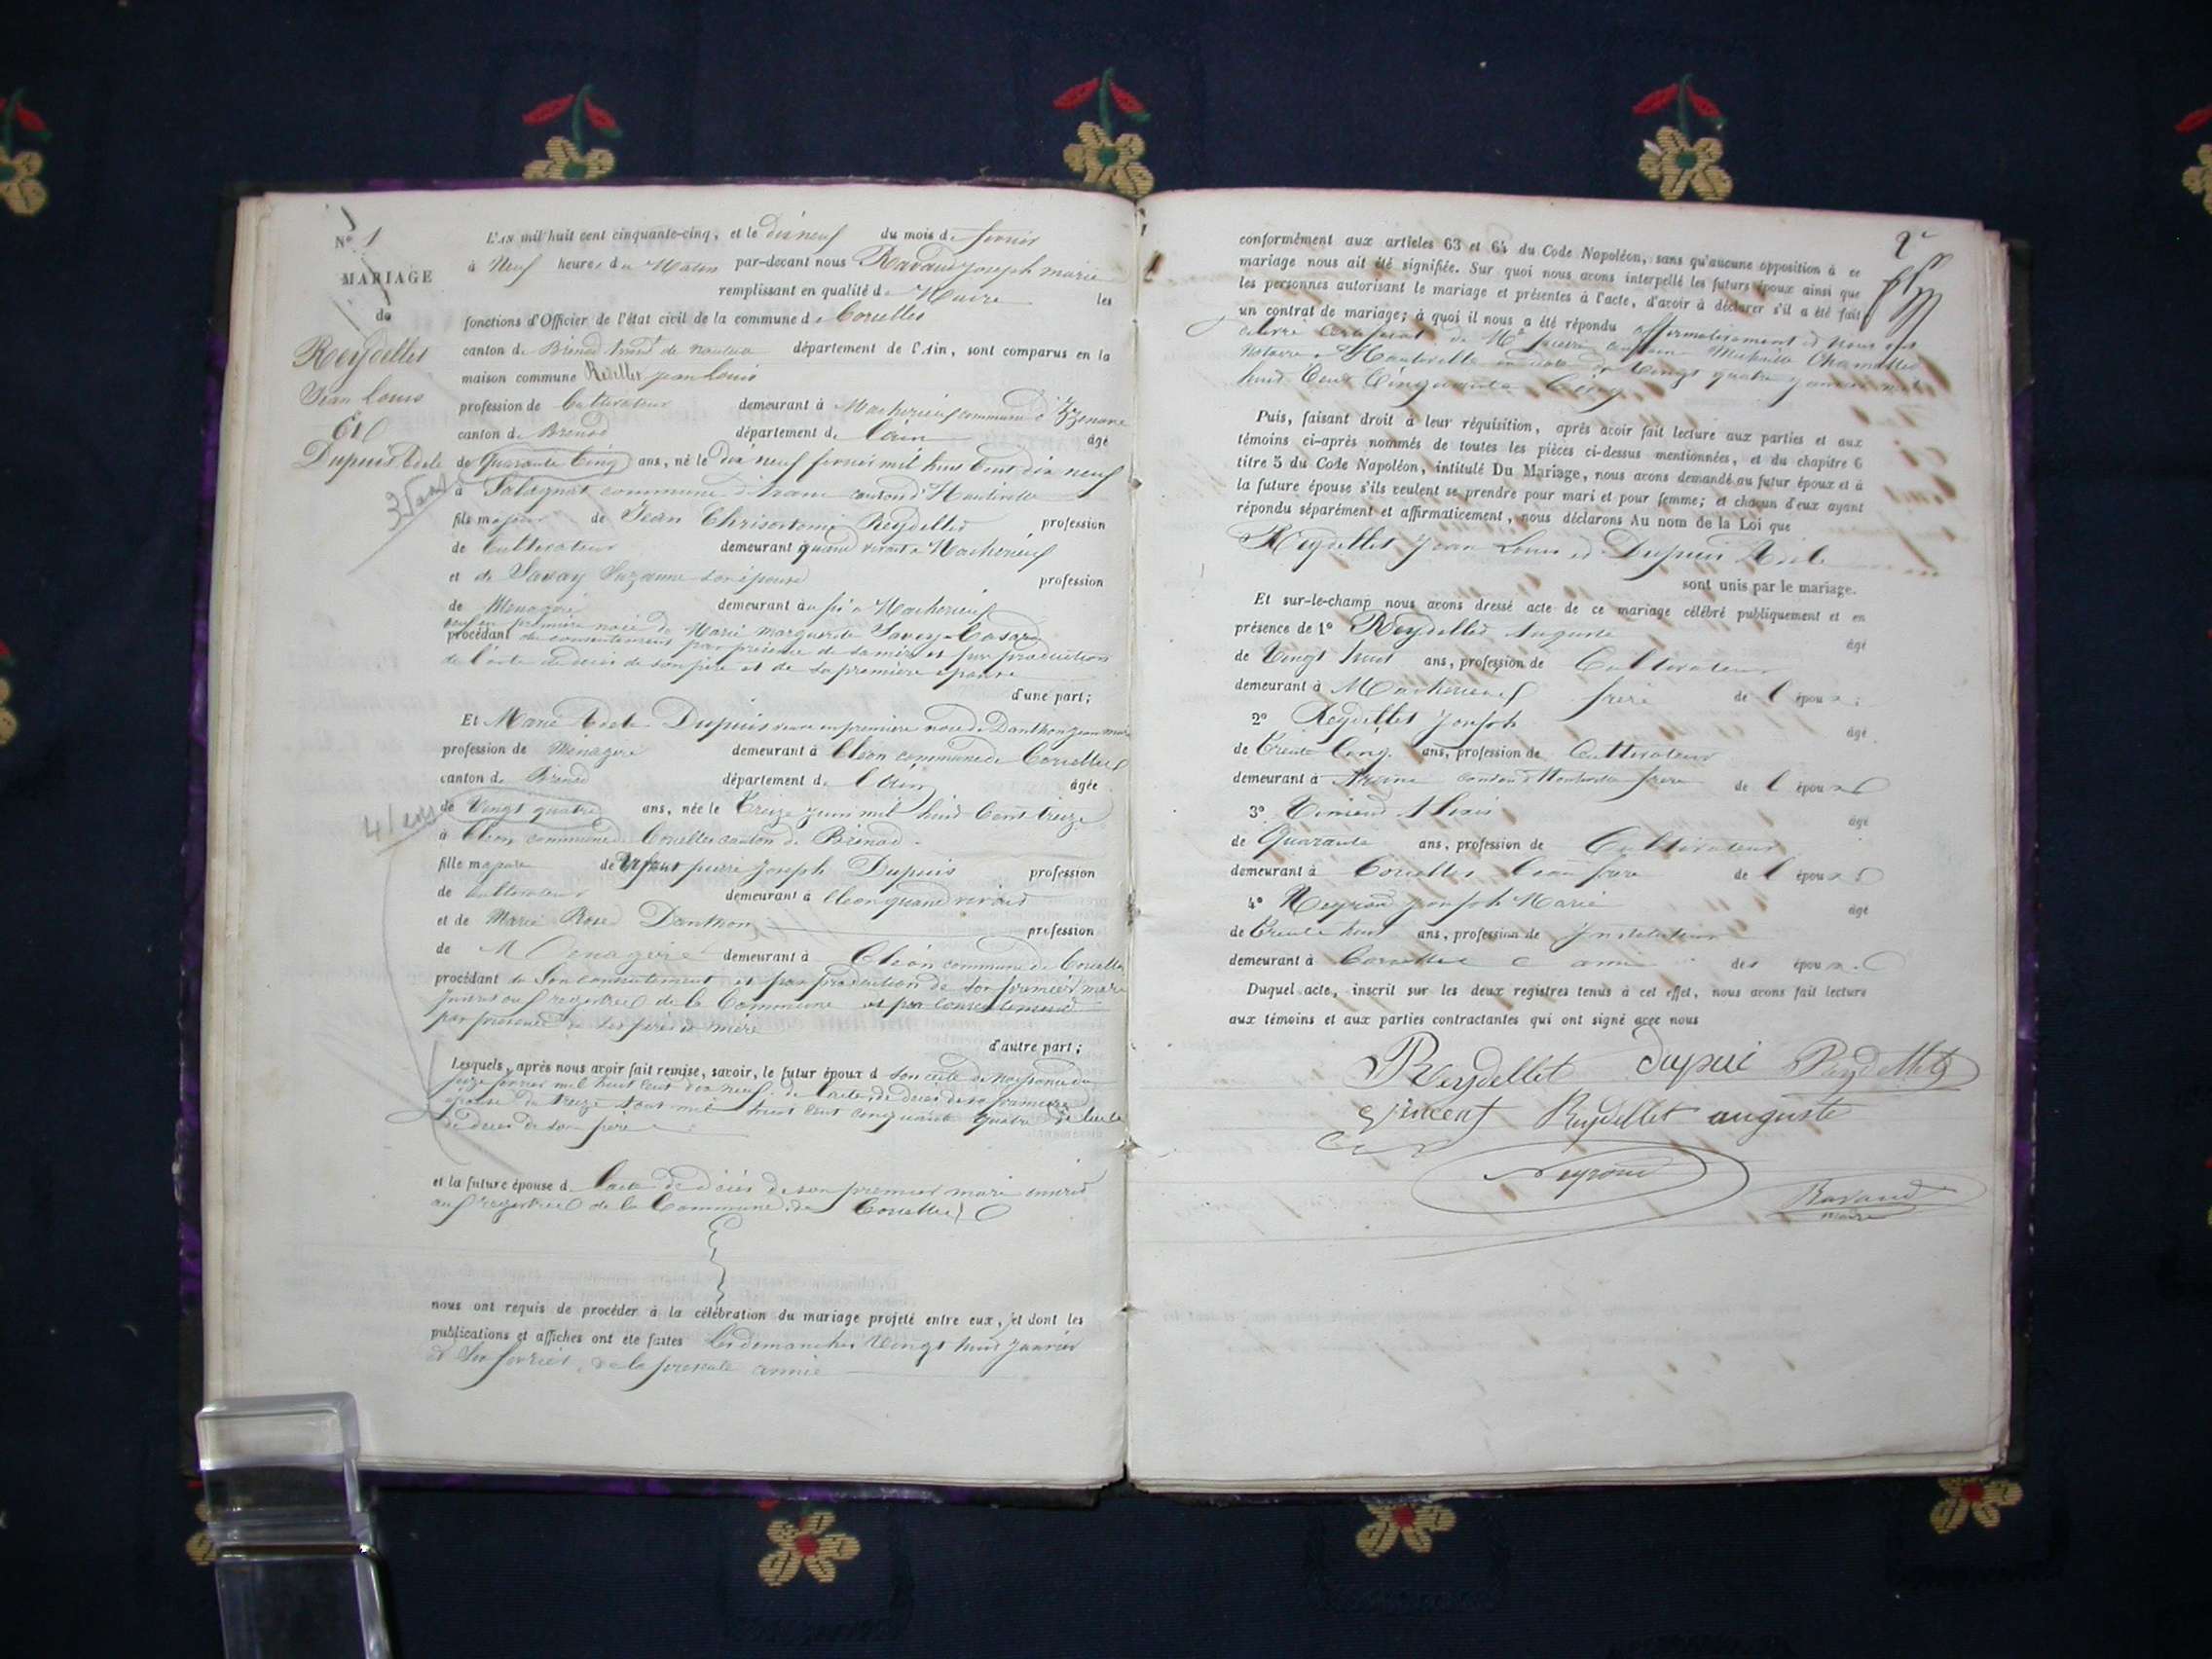 N° 1
MARIAGE
de
Reydellet
Jean Louis
Et
Dupuis Adele
35 ans
41 ans
L'AN mil huit cent cinquante-cinq, et le dix neuf du mois de fevrier
à Neuf heures du Matin par-devant nous Ravaud Joseph marie
remplissant en qualité de Maire les
fonctions d'Officier de l'état civil de la commune de Corcelles
canton de Brenod arrond de nantua département de l'Ain, sont comparus en la
maison commune Reydellet jean Louis
profession de Cultivateur demeurant à Macherieuf commune d'Izenave
canton de Brenod département de l'ain âgé
de Quarante Cinq ans, né le dix neuf fevrier mil huit Cent dix neuf
à commune d'Aranc canton d'Hauteville
fils majeur de Jean Chrisostome Reydellet profession
de Cultivateur demeurant quand vivait à Macherieuf
et de Savay Suzanne son épouse profession
de Menagere demeurant à Macherieuf
veuf en première noce de Marie Marguerite Savey
procédant du consentement par présence de sa mère et par production
de l'acte de décès de son père et de sa première épouse
d'une part;
Et Marie Adele Dupuis veuve en première noce de Danthon jean marie
profession de Menagere demeurant à Cléon commune de Corcelles
canton de Brenod département de l'Ain âgée
de Vingt quatre ans, née le Treize juin mil huit Cent treize
à Cléon commune de Corcelles canton de Brenod
fille majeure de pierre Joseph Dupuis profession
de Cultivateur demeurant à Cléon quand vivait
et de Marie Rose Danthon profession
de Menagere demeurant à Cléon commune de Corcelles
procédant de Son consentement et par production de son premier mari
registres de la Commune et par consentement
par présence de ses père et mère
d'autre part;
Lesquels, après nous avoir fait remise, savoir, le futur époux de son acte de naissance du
seize fevrier mil huit cent dix neuf, de l'acte de décès de sa première
épouse du treize aout mil huit cent cinquante quatre de l'acte
de décès de son père
et la future épouse de l'acte de décès de son premier mari inscrit
aux registres de la Commune de Corcelles
nous ont requis de procéder à la célébration du mariage projeté entre eux, et dont les
publications et affiches ont été faites les dimanches Vingt huit janvier
et fevrier de la presente année
2
conformément aux articles 63 et 64 du Code Napoléon, sans qu'aucune opposition à ce
mariage nous ait été signifiée. Sur quoi nous avons interpellé les futurs époux ainsi que
les personnes autorisant le mariage et présentes à l'acte, d'avoir à déclarer s'il a été fait
un contrat de mariage; à quoi il nous a été répondu affirmativement et nous ont
délivré certificat de Me
Notaire à Hauteville en date du Vingt quatre janvier mil
huit Cent Cinquante Cinq
Puis, faisant droit à leur réquisition, après avoir fait lecture aux parties et aux
témoins ci-après nommés de toutes les pièces ci-dessus mentionnées, et du chapitre 6
titre 5 du Code Napoléon, intitulé Du Mariage, nous avons demandé au futur époux et à
la future épouse s'ils veulent se prendre pour mari et pour femme; et chacun d'eux ayant
répondu séparément et affirmativement, nous déclarons Au nom de la Loi que
Reydellet Jean Louis et Dupuis Adele
sont unis par le mariage.
Et sur-le-champ nous avons dressé acte de ce mariage célébré publiquement et en
présence de 1° Reydellet Auguste âgé
de Vingt huit ans, profession de Cultivateur
demeurant à Macherieuf frere de l'époux;
2° Reydellet Joseph âgé
de Trente Cinq ans, profession de Cultivateur
demeurant à Aranc canton d'Hauteville frere de l'époux
3° Vincent Alexis âgé
de Quarante ans, profession de Cultivateur
demeurant à Corcelles beau frere de l'époux
4° Neyroud Joseph Marie âgé
de Trente huit ans, profession de Instituteur
demeurant à Corcelles ami des époux
Duquel acte, inscrit sur les deux registres tenus à cet effet, nous avons fait lecture
aux témoins et aux parties contractantes qui ont signé avec nous
Reydellet dupui Reydellet
Vincent Reydellet auguste
Neyroud
Ravaud
maire